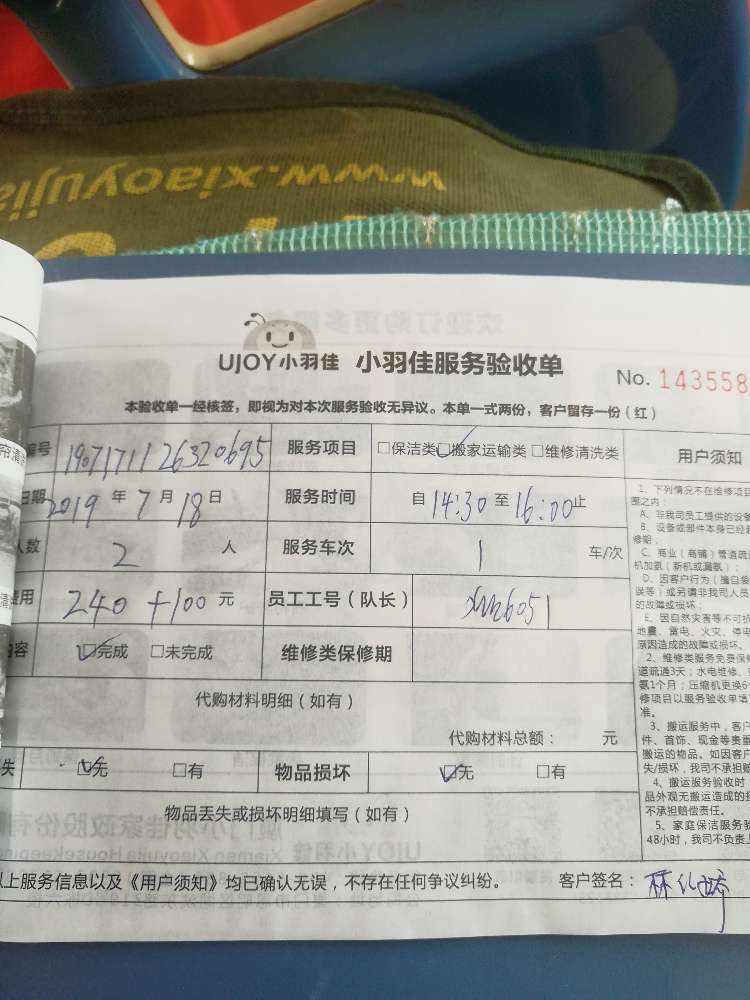 www.xiaoyujia
UJOY小羽佳 小羽佳服务验收单
No. 143558
本验收单一经核签，即视为对本次服务验收无异议。本单一式两份，客户留存一份（红）
编号 1907171126320695 服务项目 □保洁类☑搬家运输类□维修清洗类 用户须知
日期 2019年7月18日 服务时间 自14:30至16:00止
人数 2 人 服务车次 1 车/次
费用 240+100 元 员工工号（队长） xm6051
内容 ☑完成 □未完成 维修类保修期
代购材料明细（如有）
代购材料总额： 元
失 ☑无 □有 物品损坏 ☑无 □有
物品丢失或损坏明细填写（如有）
以上服务信息以及《用户须知》均已确认无误，不存在任何争议纠纷。 客户签名：林
1、下列情况不在维修项目
围之内：
A、非我司员工提供的设备
B、设备或部件本身已经超
修期；
C、商业（商铺）管道疏通
机加氨（新机或漏氨）；
D、因客户行为（擅自装
误等）或另请非我司人员
的故障或损坏；
E、因自然灾害等不可抗
地震、雷电、火灾、停电
原因造成的故障或损坏。
2、维修类服务免费保修
道疏通3天；水电维修、
氨1个月；压缩机更换6个
修项目以服务验收单填
准。
3、搬运服务中，客户
件、首饰、现金等贵重
搬运的物品。如因客户
失/损坏，我司不承担赔
4、搬运服务验收时
品外观无搬运造成的损
不承担赔偿责任。
5、家庭保洁服务验
48小时，我司不负责